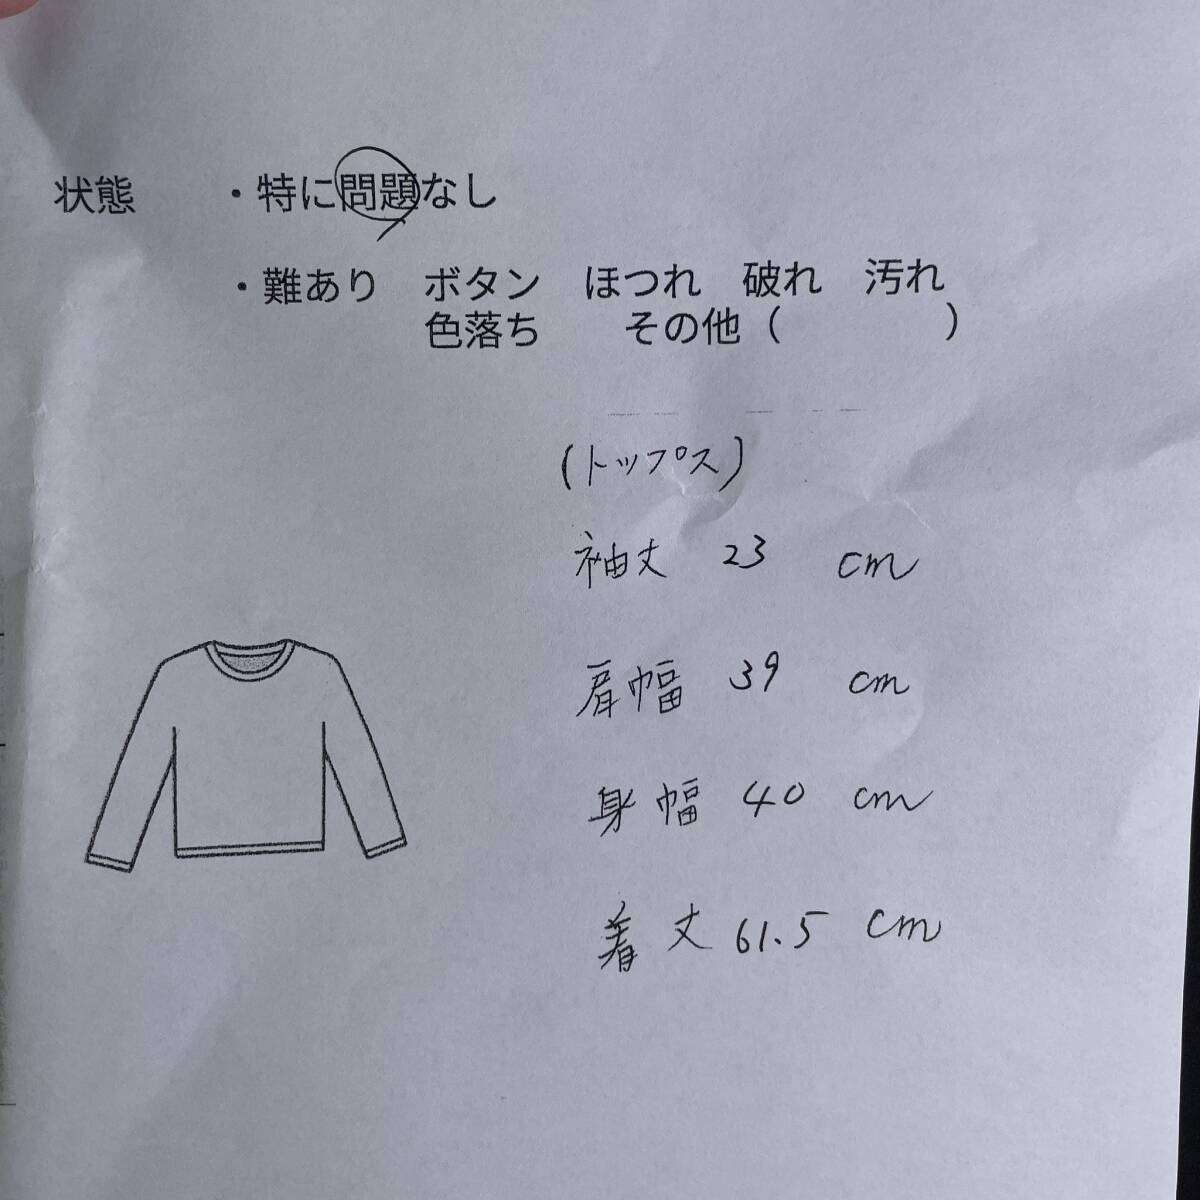 状態 ・特に問題なし
・難あり ボタン ほつれ 破れ 汚れ
色落ち その他( )
(トップス)
袖丈 23 cm
肩幅 39 cm
身幅 40 cm
着丈 61.5 cm